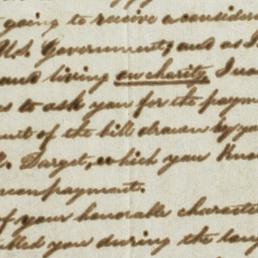 going to receive a consider
U.S. Government, and as I
and living on charity, I
as to ask you for the paym
of the bill drawn by yo
Darget, which you Know
onpayment.
of your honorable character
you during the long